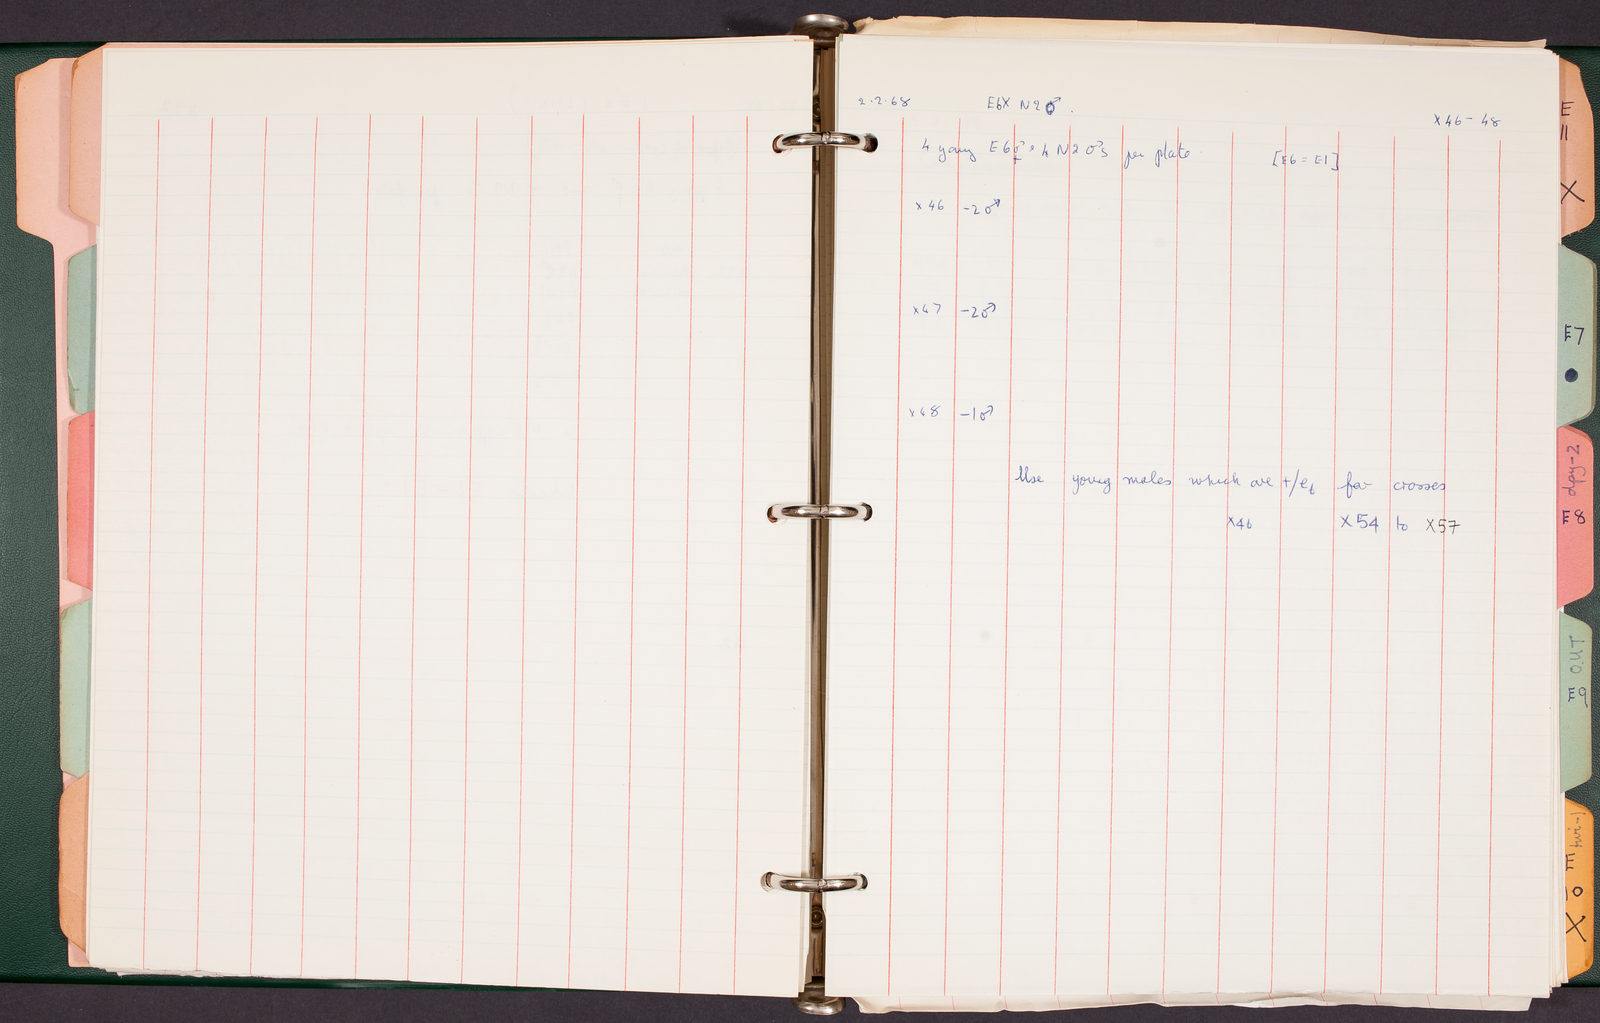 2.2.68 E6X N2♂.
X46-48
4 young E6⚥ 4 N2 ♂s per plate [E6 = E1]
X46 -2♂
X47 -2♂
X48 -1♂
Use young males which are +/e6 for crosses
X46 X54 to X57
E
11
X
E7
dpy-2
E8
OUT
E9
twi-1
E
10
X